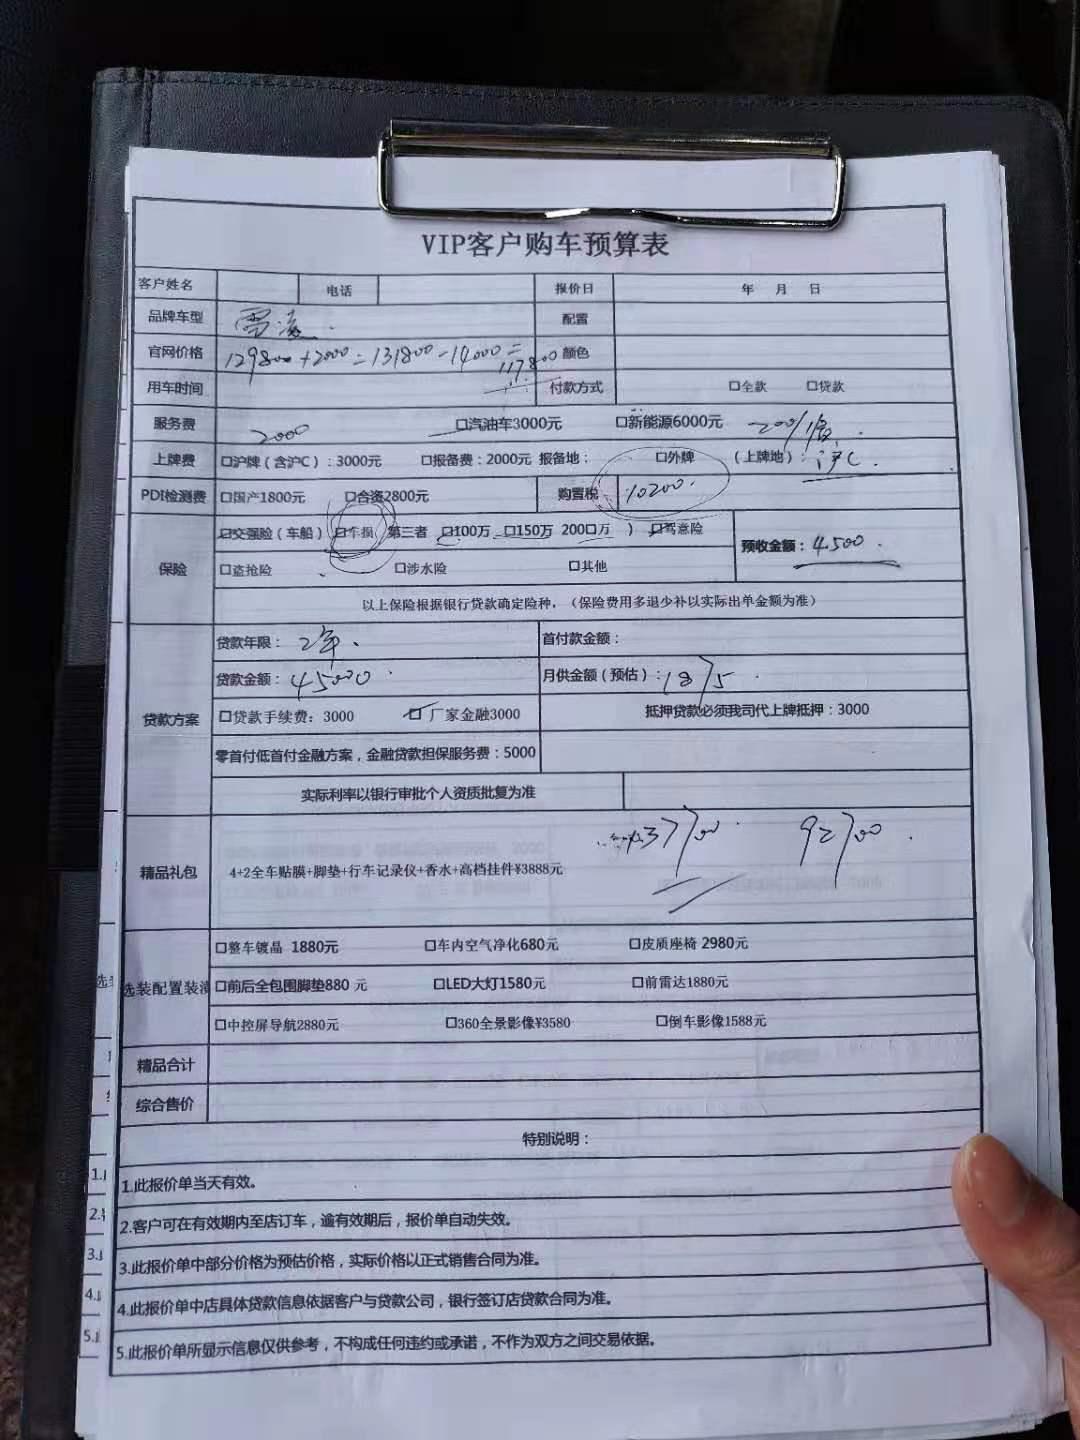 VIP客户购车预算表
客户姓名 电话 报价日 年 月 日
品牌车型 雷凌 配置
官网价格 129800+2000=131800-14000=117800 颜色
用车时间 付款方式 □全款 □贷款
服务费 2000 □汽油车3000元 □新能源6000元
上牌费 □沪牌（含沪C）：3000元 □报备费：2000元 报备地： □外牌 （上牌地）：沪C.
PDI检测费 □国产1800元 □合资2800元 购置税 10200.
保险 □交强险（车船） □车损 第三者 □100万 □150万 200□万 ） □驾意险 预收金额：4500.
□盗抢险 □涉水险 □其他
以上保险根据银行贷款确定险种，（保险费用多退少补以实际出单金额为准）
贷款方案 贷款年限：2年. 首付款金额：
贷款金额：45000. 月供金额（预估）：1875.
□贷款手续费：3000 □厂家金融3000 抵押贷款必须我司代上牌抵押：3000
零首付低首付金融方案，金融贷款担保服务费：5000
实际利率以银行审批个人资质批复为准
精品礼包 4+2全车贴膜+脚垫+行车记录仪+香水+高档挂件¥3888元 92700.
选装配置装潢 □整车镀晶 1880元 □车内空气净化680元 □皮质座椅 2980元
□前后全包围脚垫880 元 □LED大灯1580元 □前雷达1880元
□中控屏导航2880元 □360全景影像¥3580 □倒车影像1588元
精品合计
综合售价
特别说明：
1.此报价单当天有效。
2.客户可在有效期内至店订车，逾有效期后，报价单自动失效。
3.此报价单中部分价格为预估价格，实际价格以正式销售合同为准。
4.此报价单中店具体贷款信息依据客户与贷款公司，银行签订店贷款合同为准。
5.此报价单所显示信息仅供参考，不构成任何违约或承诺，不作为双方之间交易依据。